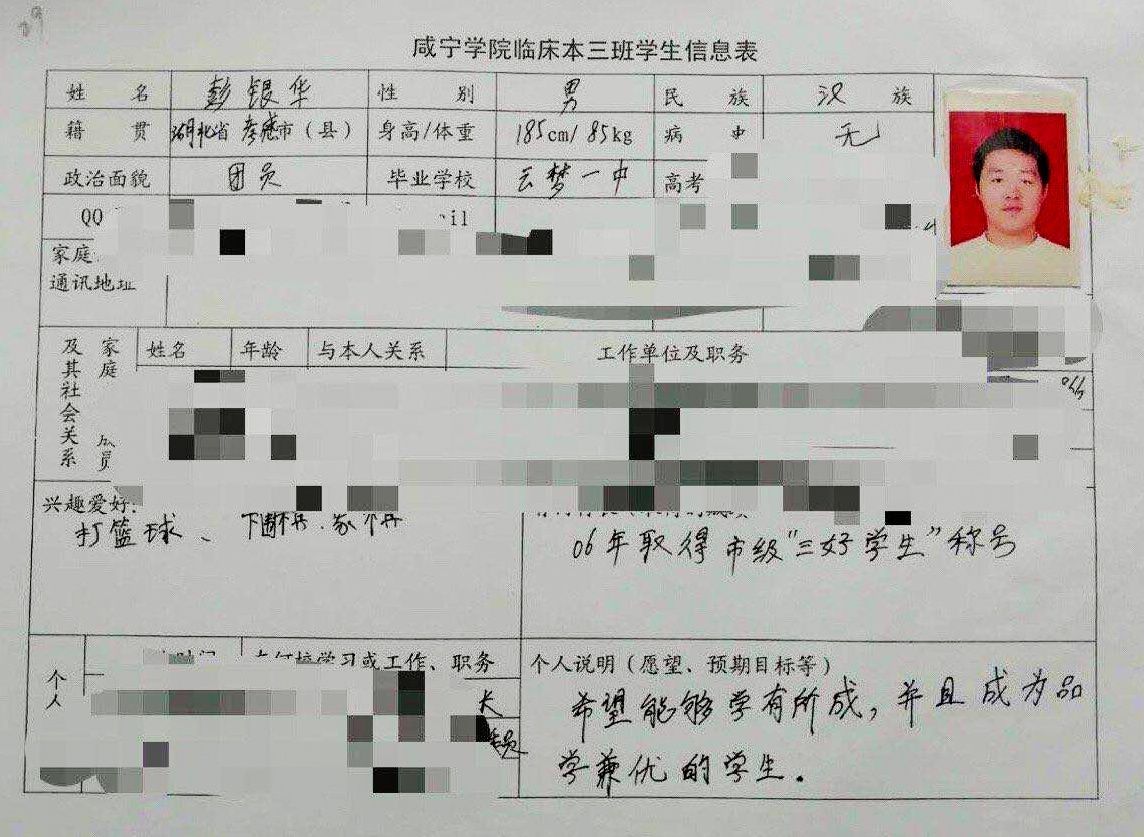 咸宁学院临床本三班学生信息表
姓 名 彭银华 性 别 男 民 族 汉 族
籍 贯 湖北省 孝感市（县） 身高/体重 185cm/ 85kg 病 史 无
政治面貌 团员 毕业学校 云梦一中 高考
QQ il
家庭
通讯地址
家庭 成员
及其社会关系
姓名 年龄 与本人关系 工作单位及职务
兴趣爱好:
打篮球、下围棋.象棋
06年取得市级“三好学生”称号
个人
学习或工作、职务
长
员
个人说明（愿望、预期目标等）
希望能够学有所成，并且成为品
学兼优的学生.